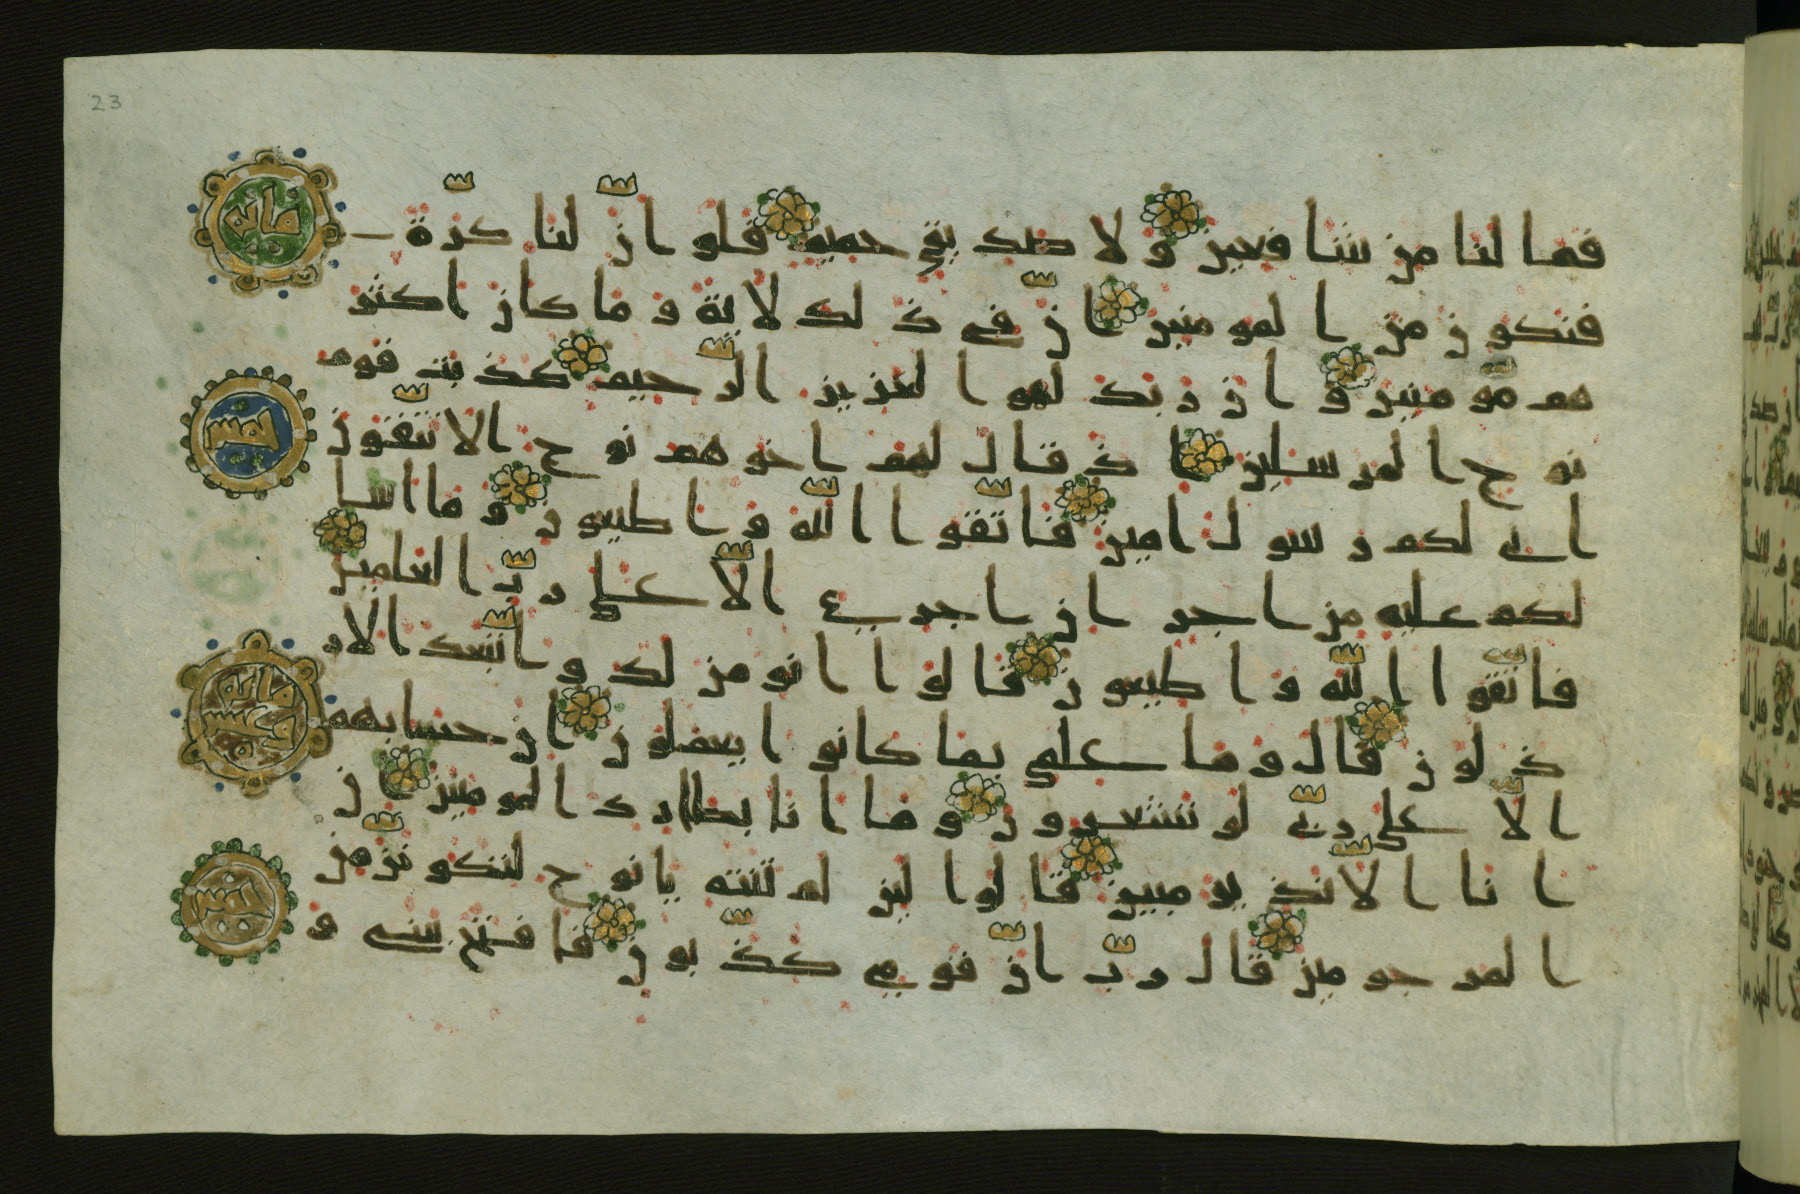 23
فما لنا من شافعين ولا صديق حميم فلو انّ لنا كرّة
مائة
فنكون من المومنين انّ في ذلك لاية وما كان اكثر
هم مّومنين وان ربك لهو العزيز الرّحيم كذبت قوم
خمس
نوح المرسلين اذ قال لهم اخوهم نوح الا تتّقون
اني لكم رسول امين فاتّقوا اللّه واطيعون وما اسا
لكم عليه من اجر ان اجري الّا على ربّ العلمين
فاتّقوا اللّه واطيعون قالوا انومن لك واتّبعك الار
ذلون قال وما علمي بما كانوا يعملون ان حسابهم
الّا على ربّي لو تشعرون وما انا بطارد المومنين ان
انا الا نذير مّبين قالوا لين لم تنته يا نوح لتكوننّ من
خمس
المرجومين قال ربّ انّ قومي كذّبون فافتح بيني و